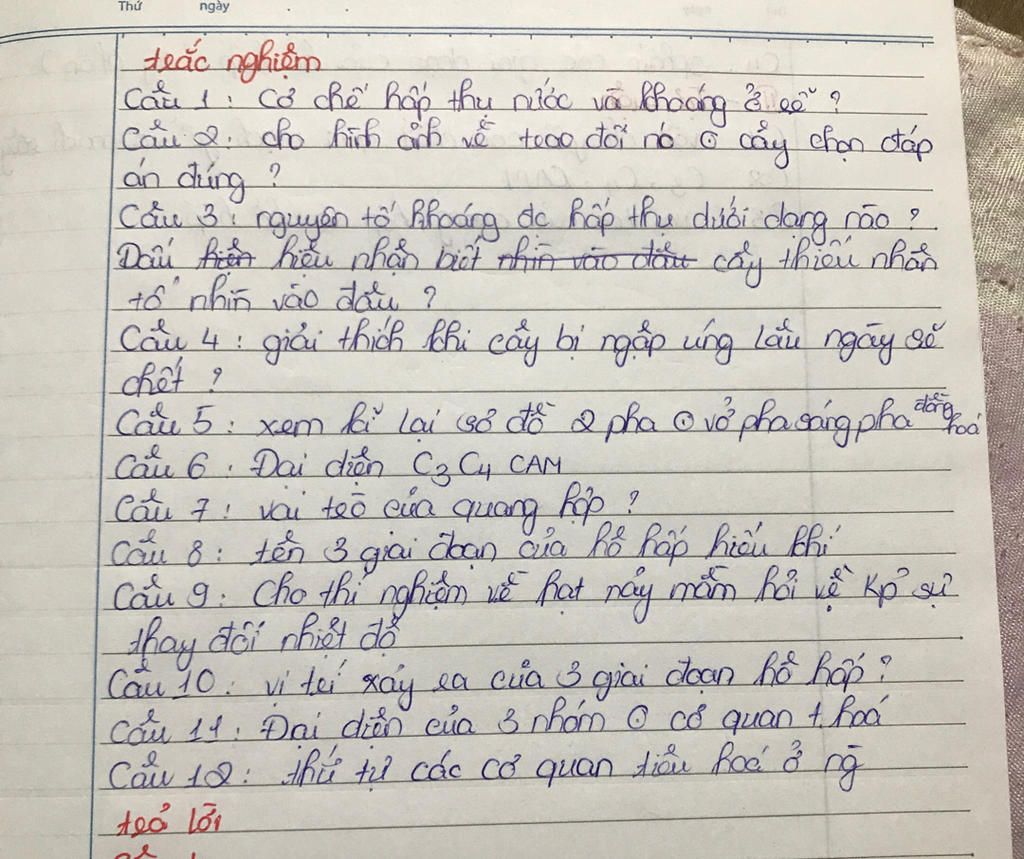 Thứ ngày
trắc nghiệm
Câu 1: Cơ chế hấp thụ nước và khoáng ở rễ ?
Câu 2: cho hình ảnh về trao đổi nó ⊙ cây chọn đáp
án đúng ?
Câu 3: nguyên tố khoáng dc hấp thụ dưới dạng nào ?
Dấu hiệu nhận biết nhìn vào đâu cây thiếu nhân
tố nhìn vào đâu ?
Câu 4: giải thích khi cây bị ngập úng lâu ngày sẽ
chết ?
Câu 5: xem kĩ lại sơ đồ 2 pha ⊙ vở pha sáng pha đồng hoá
Câu 6: Đại diện C3 C4 CAM
Câu 7: vai trò của quang hợp ?
Câu 8: tên 3 giai đoạn của hô hấp hiếu khí
Câu 9: Cho thí nghiệm về hạt nảy mầm hỏi về Kp' sự
thay đổi nhiệt độ
Câu 10: vị trí xảy ra của 3 giai đoạn hô hấp ?
Câu 11: Đại diện của 3 nhóm ⊙ cơ quan t. hoá
Câu 12: thứ tự các cơ quan tiêu hoá ở ng`
trả lời